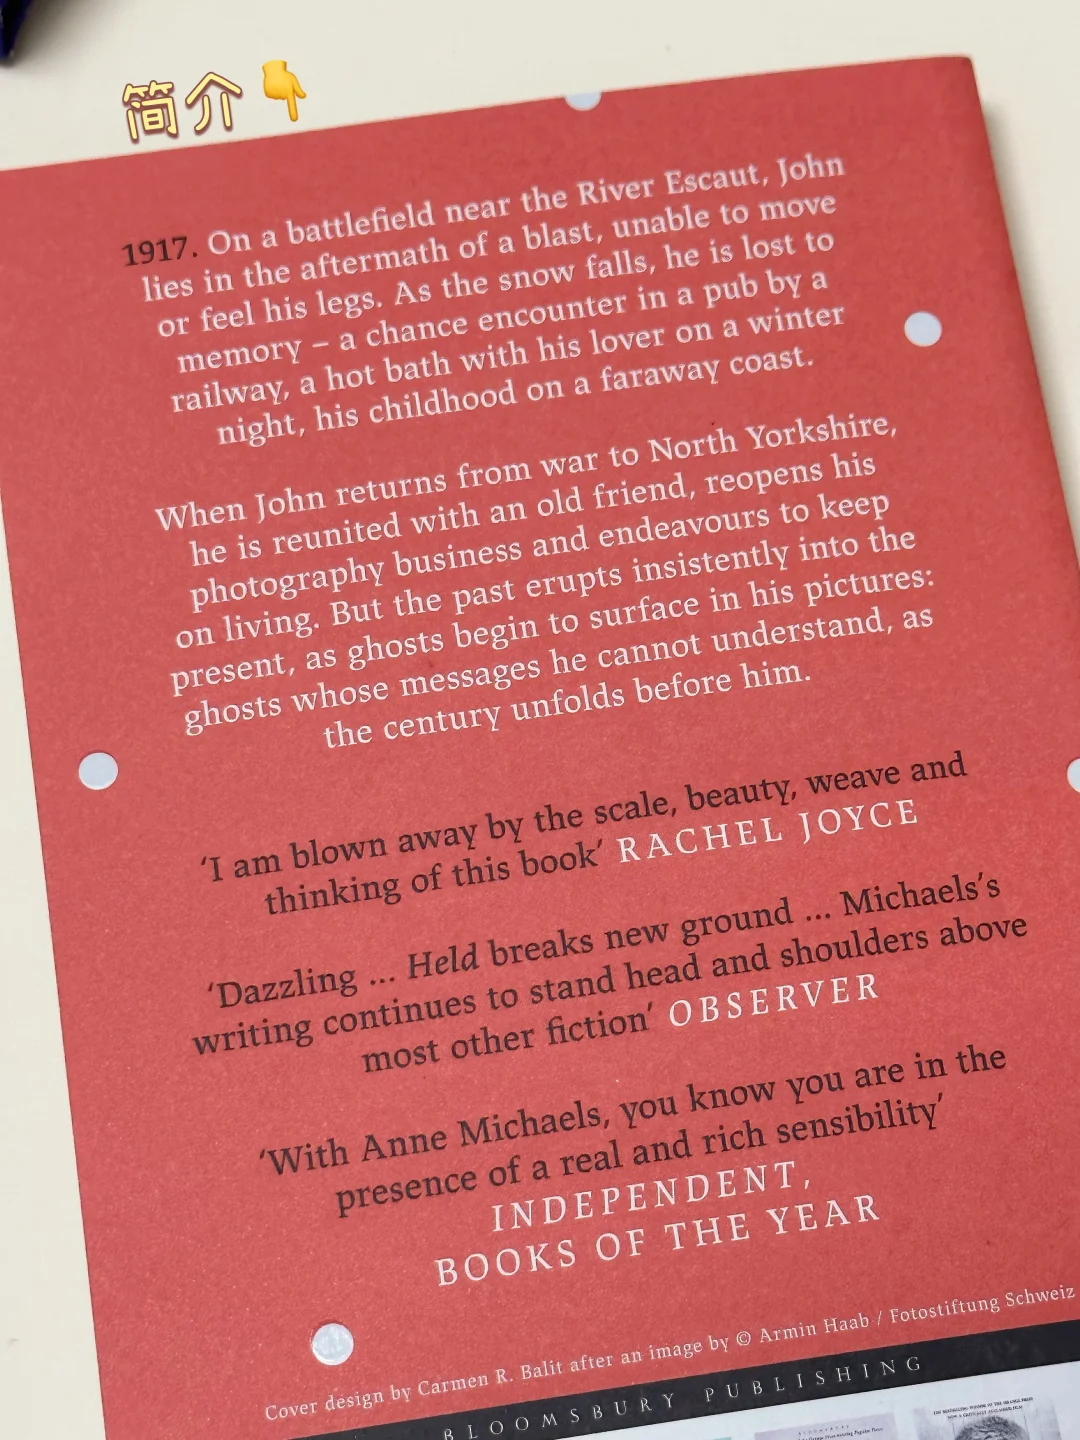 简介👇
1917. On a battlefield near the River Escaut, John
lies in the aftermath of a blast, unable to move
or feel his legs. As the snow falls, he is lost to
memory – a chance encounter in a pub by a
railway, a hot bath with his lover on a winter
night, his childhood on a faraway coast.
When John returns from war to North Yorkshire,
he is reunited with an old friend, reopens his
photography business and endeavours to keep
on living. But the past erupts insistently into the
present, as ghosts begin to surface in his pictures:
ghosts whose messages he cannot understand, as
the century unfolds before him.
‘I am blown away by the scale, beauty, weave and
thinking of this book’ RACHEL JOYCE
‘Dazzling ... Held breaks new ground ... Michaels’s
writing continues to stand head and shoulders above
most other fiction’ OBSERVER
‘With Anne Michaels, you know you are in the
presence of a real and rich sensibility’
INDEPENDENT,
BOOKS OF THE YEAR
Cover design by Carmen R. Balit after an image by © Armin Haab / Fotostiftung Schweiz
BLOOMSBURY PUBLISHING